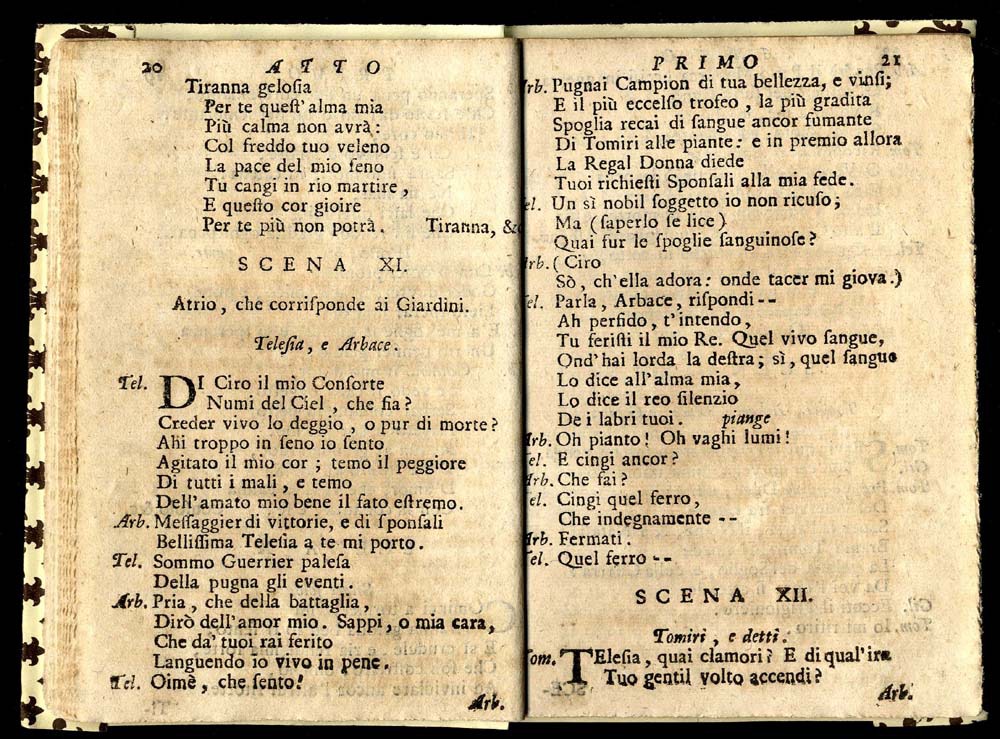 20 ATTO
Tiranna gelosia
Per te quest' alma mia
Più calma non avrà:
Col freddo tuo veleno
La pace del mio seno
Tu cangi in rio martire,
E questo cor gioire
Per te più non potrà. Tiranna, &c
SCENA XI.
Atrio, che corrisponde ai Giardini.
Telesia, e Arbace.
Tel. DI Ciro il mio Consorte
Numi del Ciel, che sia?
Creder vivo lo deggio, o pur di morte?
Ahi troppo in seno io sento
Agitato il mio cor; temo il peggiore
Di tutti i mali, e temo
Dell'amato mio bene il fato estremo.
Arb. Messaggier di vittorie, e di sponsali
Bellissima Telesia a te mi porto.
Tel. Sommo Guerrier palesa
Della pugna gli eventi.
Arb. Pria, che della battaglia,
Dirò dell'amor mio. Sappi, o mia cara,
Che da' tuoi rai ferito
Languendo io vivo in pene.
Tel. Oimè, che sento!
Arb.
PRIMO 21
Arb. Pugnai Campion di tua bellezza, e vinsi;
E il più eccelso trofeo, la più gradita
Spoglia recai di sangue ancor fumante
Di Tomiri alle piante: e in premio allora
La Regal Donna diede
Tuoi richiesti Sponsali alla mia fede.
Tel. Un sì nobil soggetto io non ricuso;
Ma (saperlo se lice)
Quai fur le spoglie sanguinose?
Arb. (Ciro
Sò, ch'ella adora: onde tacer mi giova.)
Tel. Parla, Arbace, rispondi --
Ah perfido, t'intendo,
Tu feristi il mio Re. Quel vivo sangue,
Ond'hai lorda la destra; sì, quel sangue
Lo dice all'alma mia,
Lo dice il reo silenzio
De i labri tuoi. piange
Arb. Oh pianto! Oh vaghi lumi!
Tel. E cingi ancor?
Arb. Che fai?
Tel. Cingi quel ferro,
Che indegnamente --
Arb. Fermati.
Tel. Quel ferro --
SCENA XII.
Tomiri, e detti.
Tom. TElesia, quai clamori? E di qual'ira
Tuo gentil volto accendi?
Arb.